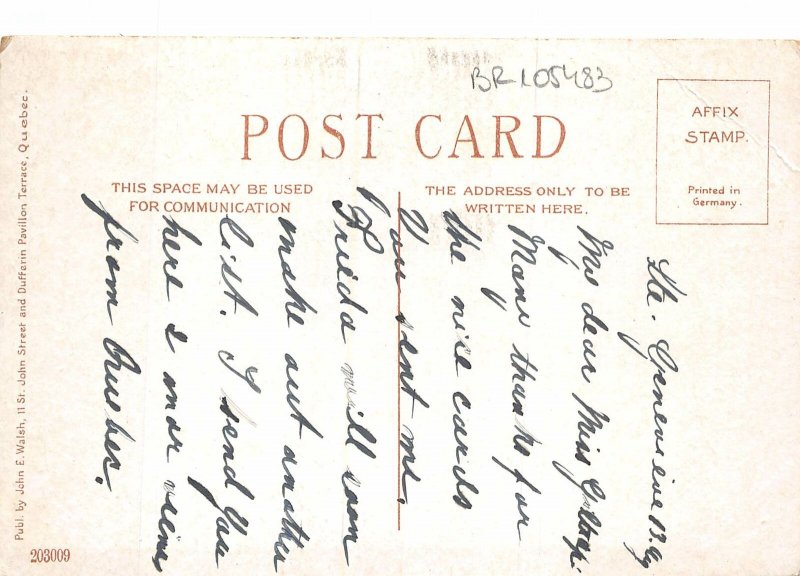 BR105483
POST CARD
AFFIX
STAMP.
Printed in
Germany.
THIS SPACE MAY BE USED
FOR COMMUNICATION
THE ADDRESS ONLY TO BE
WRITTEN HERE.
Ste. Genevieve
My dear Miss
Many thanks for
the nice cards
You sent me.
Frieda will soon
make out another
list. I send you
here 2 more views
from Quebec.
Publ. by John E. Walsh, 11 St. John Street and Dufferin Pavillon Terrace, Quebec.
203009